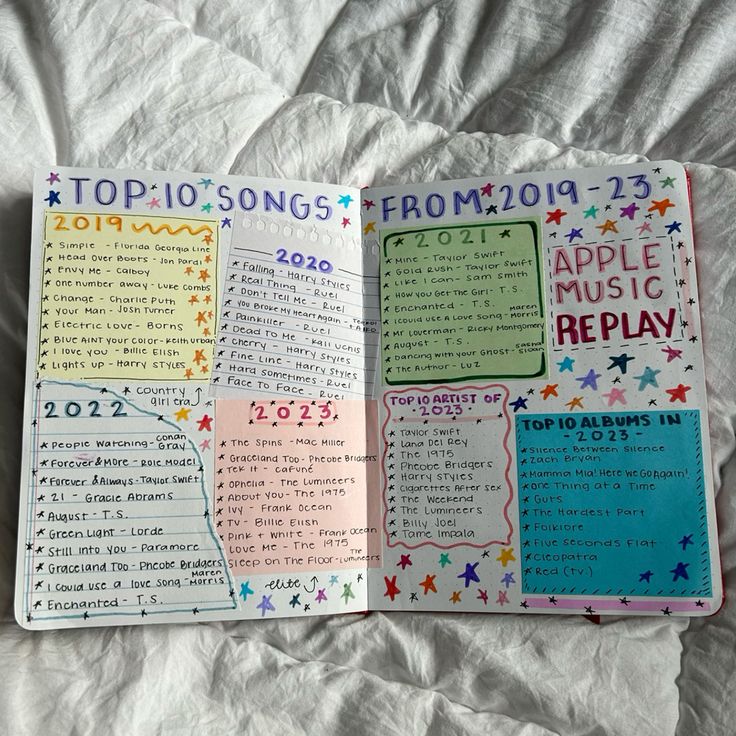 TOP 10 SONGS
2019
Simple - Florida Georgia Line
Head Over Boots - Jon Pardi
Envy Me - Calboy
one number away - Luke Combs
Change - Charlie Puth
Your Man - Josh Turner
Electric Love - Borns
Blue Aint your color - Keith urban
I love you - Billie Elish
Lights up - Harry Styles
country
girl era
2020
Falling - Harry Styles
Real Thing - Ruel
Don't Tell Me - Ruel
You Broke My Heart Again -
Painkiller - Ruel
Dead To Me - Kali Uchis
Cherry - Harry Styles
Fine Line - Harry Styles
Hard Sometimes - Ruel
Face To Face - Ruel
2022
People Watching - Conan
Gray
Forever & More - Role Model
Forever & Always - Taylor Swift
21 - Gracie Abrams
August - T.S.
Green Light - Lorde
Still Into You - Paramore
Graceland Too - Pheobe Bridgers
I could use a love song - Maren
Morris
Enchanted - T.S.
2023
The Spins - Mac Miller
Graceland Too - Pheobe Bridgers
Tek It - Cafuné
Ophelia - The Lumineers
About You - The 1975
Ivy - Frank Ocean
TV - Billie Elish
Pink + White - Frank Ocean
Love Me - The 1975
Sleep On The Floor - The
Lumineers
elite
FROM 2019 - 23
2021
Mine - Taylor Swift
Gold Rush - Taylor Swift
Like I can - Sam Smith
How you Get The Girl - T.S.
Enchanted - T.S.
I could use a Love Song - Maren
Morris
Mr Loverman - Ricky Montgomery
August - T.S.
Dancing with your Ghost - Sasha
Sloan
The Author - Luz
APPLE
MUSIC
REPLAY
TOP 10 ARTIST OF
- 2023 -
Taylor Swift
Lana Del Rey
The 1975
Pheobe Bridgers
Harry Styles
Cigarettes After Sex
The Weekend
The Lumineers
Billy Joel
Tame Impala
TOP 10 ALBUMS IN
- 2023 -
Silence Between Silence
Zach Bryan
Mamma Mia! Here we Go Again!
One Thing at a Time
Guts
The Hardest Part
Folklore
Five Seconds Flat
Cleopatra
Red (TV)